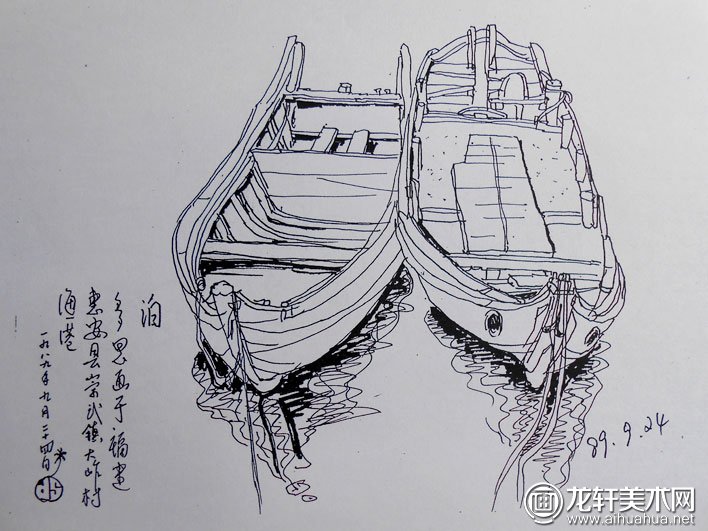 泊
思画于福建
惠安县崇武镇大岞村
渔港
一九八九年九月二十四日
89.9.24
画 龙轩美术网
www.aihuahua.net